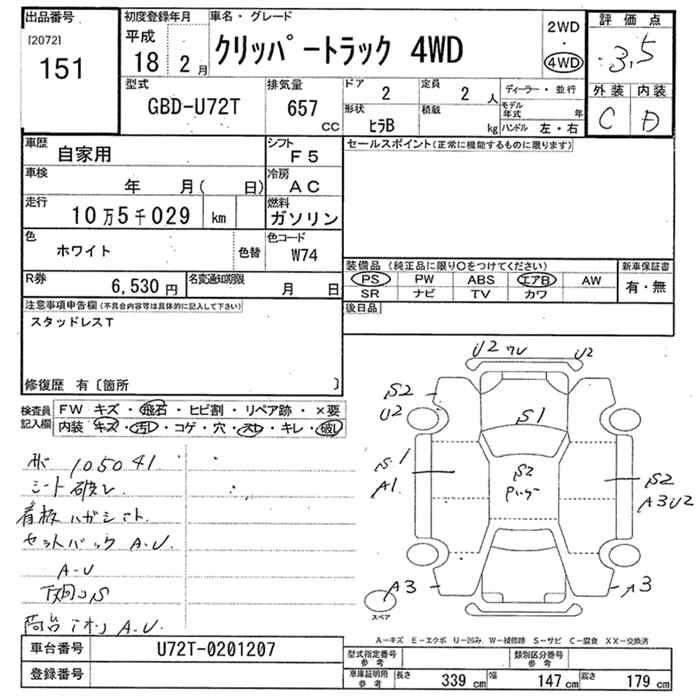 出品番号
[2072]
151
初度登録年月
平成
18 2月
車名・グレード
クリッパートラック 4WD
2WD
・
4WD
評価点
3.5
外装 内装
C D
型式
GBD-U72T
排気量
657
cc
ドア
2
定員
2 人
ディーラー・並行
形状
ヒラB
積載
kg
モデル年式 年
ハンドル 左・右
車歴
自家用
シフト
F5
セールスポイント(正常に機能するものに限ります)
車検
年 月( 日)
冷房
AC
走行
10万5千029 km
燃料
ガソリン
色
ホワイト
色替
色コード
W74
R券
6,530円
名変通知期限
月 日
装備品 (純正品に限り○をつけてください)
PS PW ABS エアB AW
SR ナビ TV カワ
新車保証書
有・無
後日品
注意事項申告欄(不具合内容等は具体的に記入して下さい)
スタッドレスT
修復歴 有〔箇所 〕
検査員
記入欄
FW キズ・飛石・ヒビ割・リペア跡・×要
内装 キズ・汚レ・コゲ・穴・スレ・キレ・破レ
105041
シート破レ
看板ハガシ
セットバック A-U.
A-U
下廻りS
荷台 A-U.
U2 ワレ U2
S2
U2
S1
S1
A1
S2
S2
A3 U2
A3
A3
スペア
A−キズ E−エクボ U−凹み W−補修跡 S−サビ C−腐食 XX−交換済
車台番号
U72T-0201207
登録番号
型式指定番号
参考
類別区分番号
参考
車庫証明用
参考
長さ 339 cm 幅 147 cm 高さ 179 cm